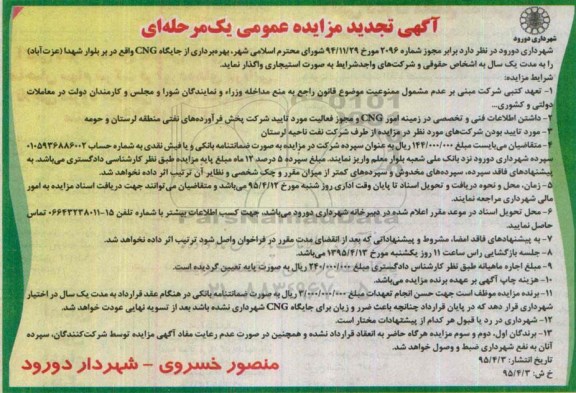 شهرداری دورود
آگهی تجدید مزایده عمومی یک‌مرحله‌ای
شهرداری دورود در نظر دارد برابر مجوز شماره ۲۰۹۶ مورخ ۹۴/۱۱/۲۹ شورای محترم اسلامی شهر، بهره‌برداری از جایگاه CNG واقع در پر بلوار شهدا (عزت‌آباد)
را به مدت یک سال به اشخاص حقوقی و شرکت‌های واجدشرایط به صورت استیجاری واگذار نماید.
شرایط مزایده:
۱- تعهد کتبی شرکت مبنی بر عدم مشمول ممنوعیت موضوع قانون راجع به منع مداخله وزراء و نمایندگان شورا و مجلس و کارمندان دولت در معاملات
دولتی و کشوری...
۲- داشتن اطلاعات فنی و تخصصی در زمینه امور CNG و مجوز فعالیت مورد تایید شرکت پخش فرآورده‌های نفتی منطقه لرستان و حومه
۳- مورد تایید بودن شرکت‌های مورد نظر در مزایده از طرف شرکت نفت ناحیه لرستان
۴- متقاضیان می‌بایست مبلغ ۱۴۴/۰۰۰/۰۰۰ ریال به عنوان سپرده شرکت در مزایده به صورت ضمانتنامه بانکی و یا فیش نقدی به شماره حساب ۰۱۰۵۹۳۶۸۸۶۰۰۲
سپرده شهرداری دورود نزد بانک ملی شعبه بلوار معلم واریز نمایند. مبلغ سپرده ۵ درصد ۱۲ ماه مبلغ پایه مزایده طبق نظر کارشناسی دادگستری می‌باشد. به
پیشنهادهای فاقد سپرده، سپرده‌های مخدوش و سپرده‌های کمتر از میزان مقرر و چک شخصی و نظایر آن ترتیب اثر داده نخواهد شد.
۵- زمان، محل و نحوه دریافت و تحویل اسناد تا پایان وقت اداری روز شنبه مورخ ۹۵/۴/۱۲ می‌باشد و متقاضیان می‌توانند جهت دریافت اسناد مزایده به امور
مالی شهرداری مراجعه نمایند.
۶- محل تحویل اسناد در موعد مقرر اعلام شده در دبیرخانه شهرداری دورود می‌باشد. جهت کسب اطلاعات بیشتر با شماره تلفن ۱۵-۰۶۶۴۳۲۳۸۰۱۱ تماس
حاصل نمایید.
۷- به پیشنهادهای فاقد امضا، مشروط و پیشنهاداتی که بعد از انقضای مدت مقرر در فراخوان واصل شود ترتیب اثر داده نخواهد شد.
۸- جلسه بازگشایی راس ساعت ۱۱ روز یکشنبه مورخ ۱۳۹۵/۴/۱۳ می‌باشد.
۹- مبلغ اجاره ماهیانه طبق نظر کارشناس دادگستری مبلغ ۲۴۰/۰۰۰/۰۰۰ ریال به صورت پایه تعیین گردیده است.
۱۰- هزینه چاپ آگهی بر عهده برنده مزایده می‌باشد.
۱۱- برنده مزایده موظف است جهت حسن انجام تعهدات مبلغ ۳/۰۰۰/۰۰۰/۰۰۰ ریال به صورت ضمانتنامه بانکی در هنگام عقد قرارداد به مدت یک سال در اختیار
شهرداری قرار دهد که در پایان قرارداد چنانچه باعث ضرر و زیان برای جایگاه CNG شهرداری نشده باشد بعد از تسویه نهایی عودت خواهد شد.
۱۲- شهرداری در رد یا قبول هر کدام از پیشنهادات مختار است.
۱۳- برندگان اول، دوم و سوم مزایده هرگاه حاضر به انعقاد قرارداد نشده و همچنین در صورت عدم رعایت مفاد آگهی مزایده توسط شرکت‌کنندگان، سپرده
آنان به نفع شهرداری ضبط و وصول خواهد شد.
تاریخ انتشار: ۹۵/۴/۳
خ ش: ۹۵/۴/۳
منصور خسروی - شهردار دورود